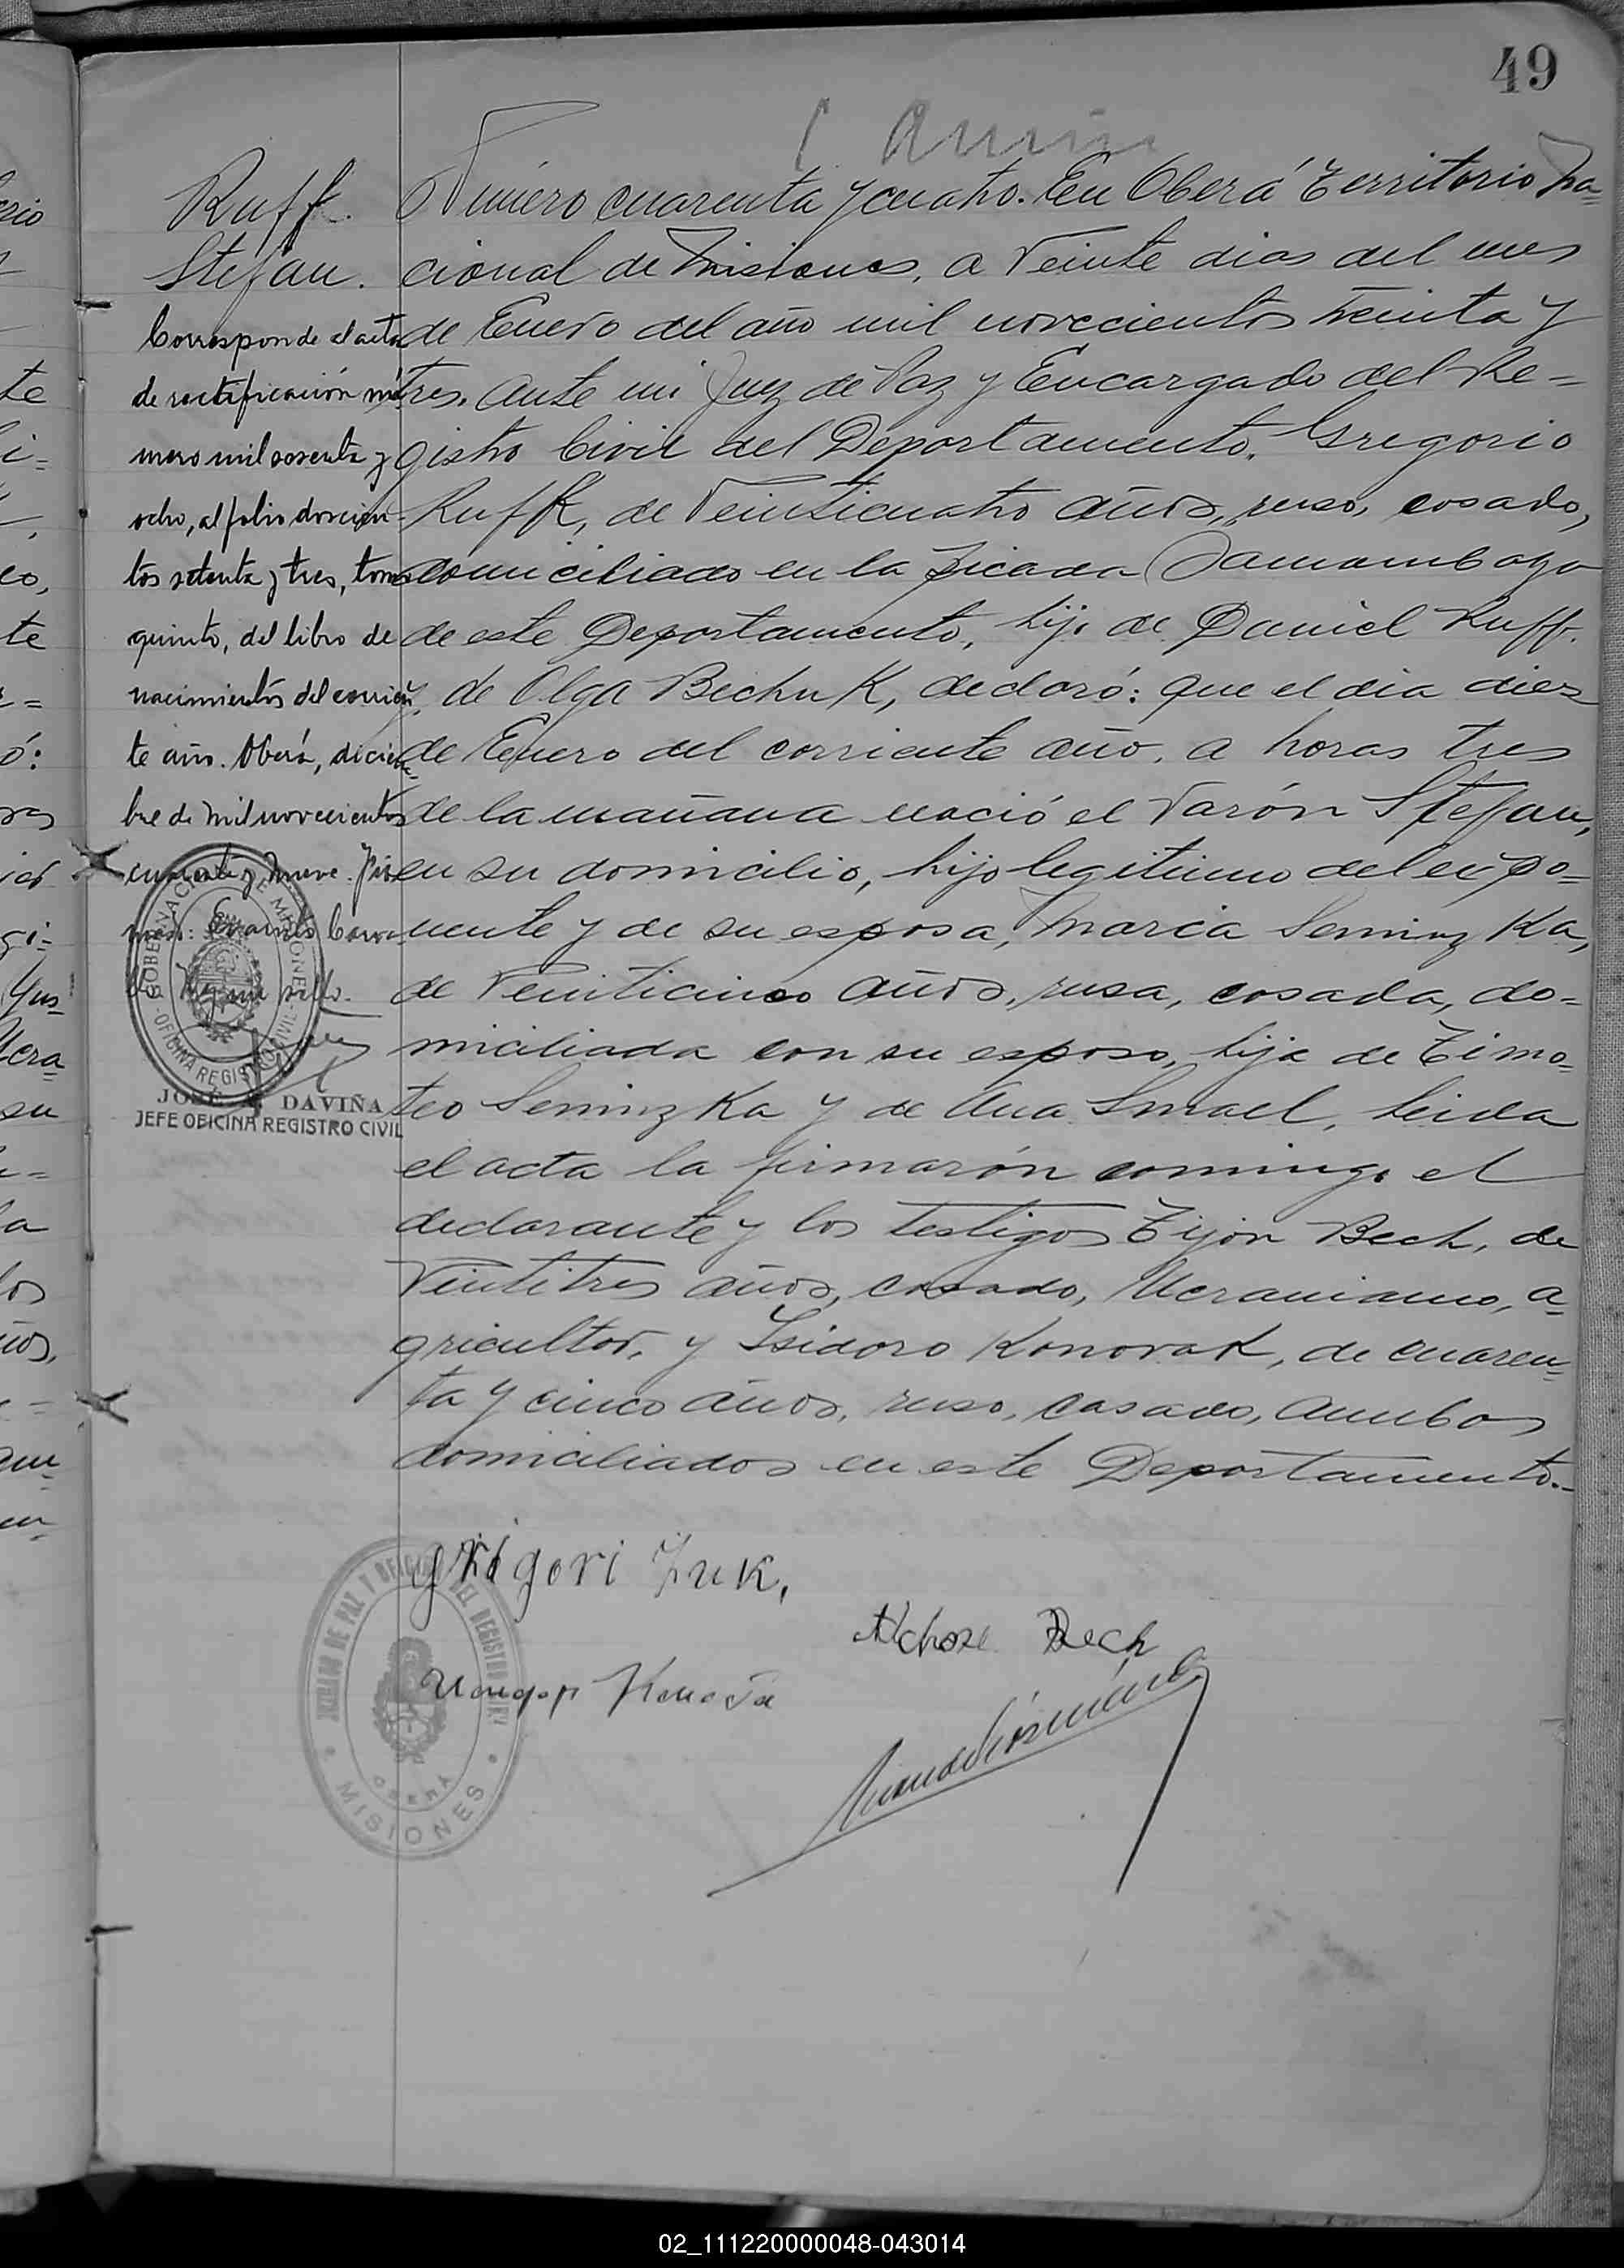 49
Ruff.
Stefan.
Corresponde el acta
de rectificación nú-
mero mil sesenta y
ocho, al folio doscien-
tos setenta y tres, tomo
quinto, del libro de
nacimientos del corrien-
te año. Oberá, diciem-
bre de mil novecientos
cuarenta y nueve.
GOBERNACION DE MISIONES
OFICINA REGISTRO CIVIL
JOSÉ A. DAVIÑA
JEFE OFICINA REGISTRO CIVIL
Número cuarenta y cuatro. En Oberá Territorio Na=
cional de Misiones, a Veinte dias del mes
de Enero del año mil novecientos treinta y
tres. Ante mi Juez de Paz y Encargado del Re=
gistro Civil del Departamento, Gregorio
Ruff, de Veinticuatro años, ruso, casado,
domiciliado en la picada
de este Departamento, hijo de Daniel Ruff.
y, de Olga Bechuk, declaró: que el dia diez
de Enero del corriente año, a horas tres
de la mañana nació el Varón Stefan,
en su domicilio, hijo legitimo del expo=
nente y de su esposa, Maria Seminzka,
de Veinticinco años, rusa, casada, do=
miciliada con su esposo, hija de Timo=
teo Seminzka y de Ana Smael, leida
el acta la firmarón conmigo el
declarante y los testigos Tijon Bech, de
Veintitres años, casado, Ucraniano, a=
gricultor, y Isidoro Konovak, de cuaren=
ta y cinco años, ruso, casado, ambos
domiciliados en este Departamento.-
grigori Zuk,
Bech
JUZGADO DE PAZ Y OFICINA DEL REGISTRO CIVIL
OBERÁ
MISIONES
02_111220000048-043014